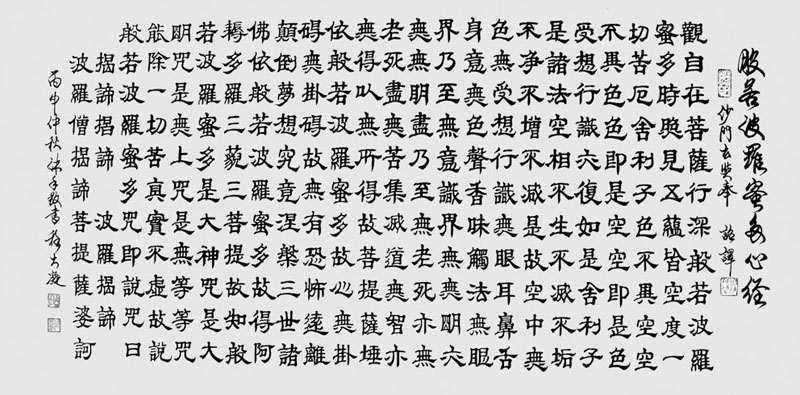 般若波羅蜜多心經
沙門玄奘奉 詔譯
觀自在菩薩行深般若波羅
蜜多時照見五蘊皆空度一
切苦厄舍利子色不異空空
不異色色即是空空即是色
受想行識亦復如是舍利子
是諸法空相不生不滅不垢
不淨不增不減是故空中無
色無受想行識無眼耳鼻舌
身意無色聲香味觸法無眼
界乃至無意識界無無明亦
無無明盡乃至無老死亦無
老死盡無苦集滅道無智亦
無得以無所得故菩提薩埵
依般若波羅蜜多故心無掛
礙無掛礙故無有恐怖遠離
顛倒夢想究竟涅槃三世諸
佛依般若波羅蜜多故得阿
耨多羅三藐三菩提故知般
若波羅蜜多是大神咒是大
明咒是無上咒是無等等咒
能除一切苦真實不虛故說
般若波羅蜜多咒即說咒曰
揭諦揭諦 波羅揭諦
波羅僧揭諦菩提薩婆訶
丙申仲秋沐手敬書